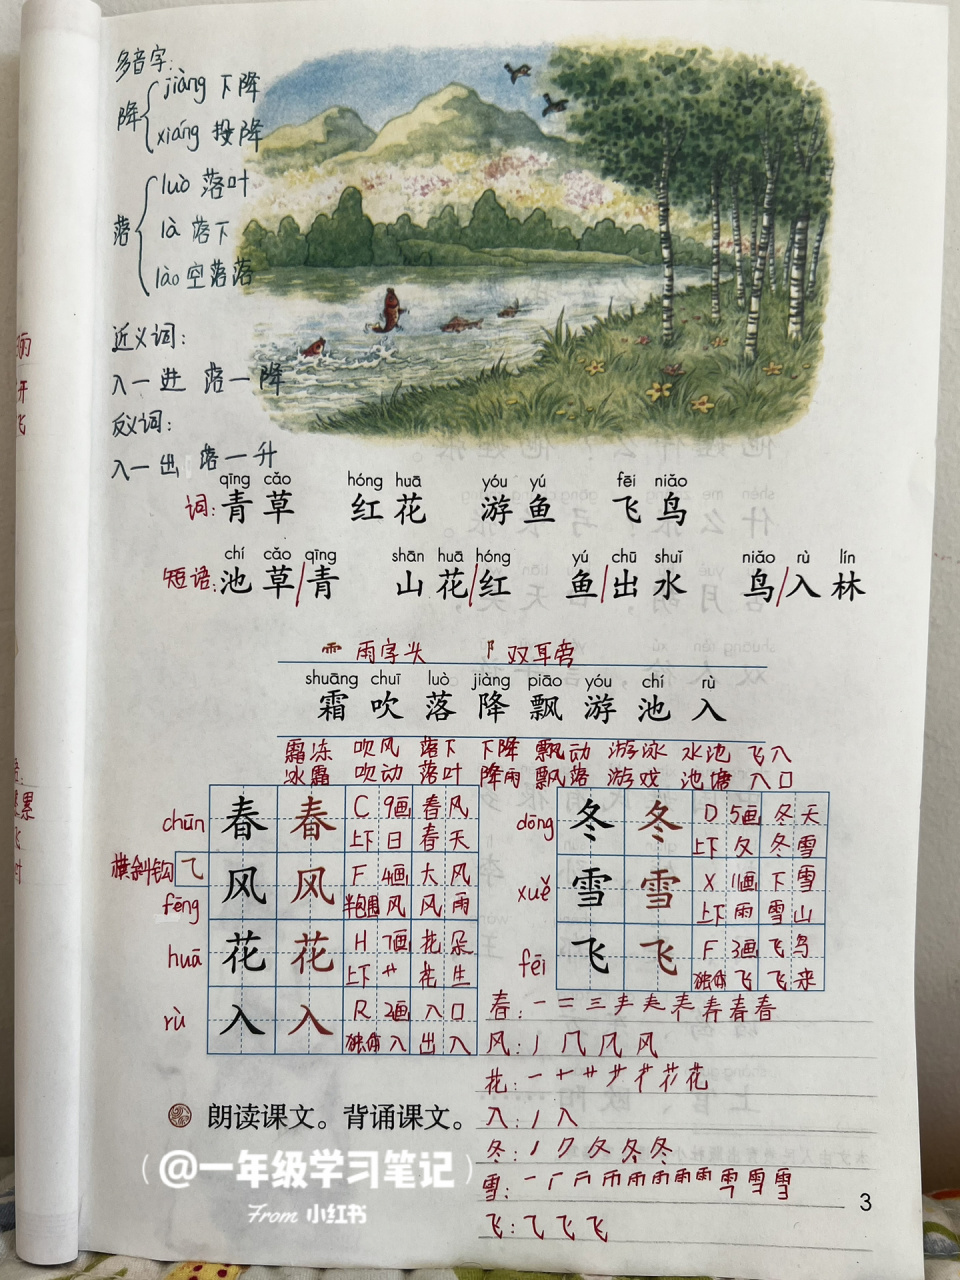 多音字:
降 jiàng 下降
xiáng 投降
落 luò 落叶
là 落下
lào 空落落
近义词:
入一进 落一降
反义词:
入一出 落一升
qīng cǎo hóng huā yóu yú fēi niǎo
词: 青草 红花 游鱼 飞鸟
chí cǎo qīng shān huā hóng yú chū shuǐ niǎo rù lín
短语: 池草/青 山花/红 鱼/出水 鸟/入林
⻗ 雨字头 阝 双耳旁
shuāng chuī luò jiàng piāo yóu chí rù
霜 吹 落 降 飘 游 池 入
霜冻 吹风 落下 下降 飘动 游泳 水池 飞入
冰霜 吹动 落叶 降雨 飘落 游戏 池塘 入口
chūn 春 春 C 9画 春风
上下 日 春天
横斜钩 ⺄ fēng 风 风 F 4画 大风
半包围 风 风雨
huā 花 花 H 7画 花朵
上下 艹 花生
rù 入 入 R 2画 入口
独体 入 出入
dōng 冬 冬 D 5画 冬天
上下 夂 冬雪
xuě 雪 雪 X 11画 下雪
上下 雨 雪山
fēi 飞 飞 F 3画 飞鸟
独体 飞 飞来
春:
风:
花:
入:
冬:
雪:
飞:
朗读课文。背诵课文。
(@一年级学习笔记)
From 小红书
3